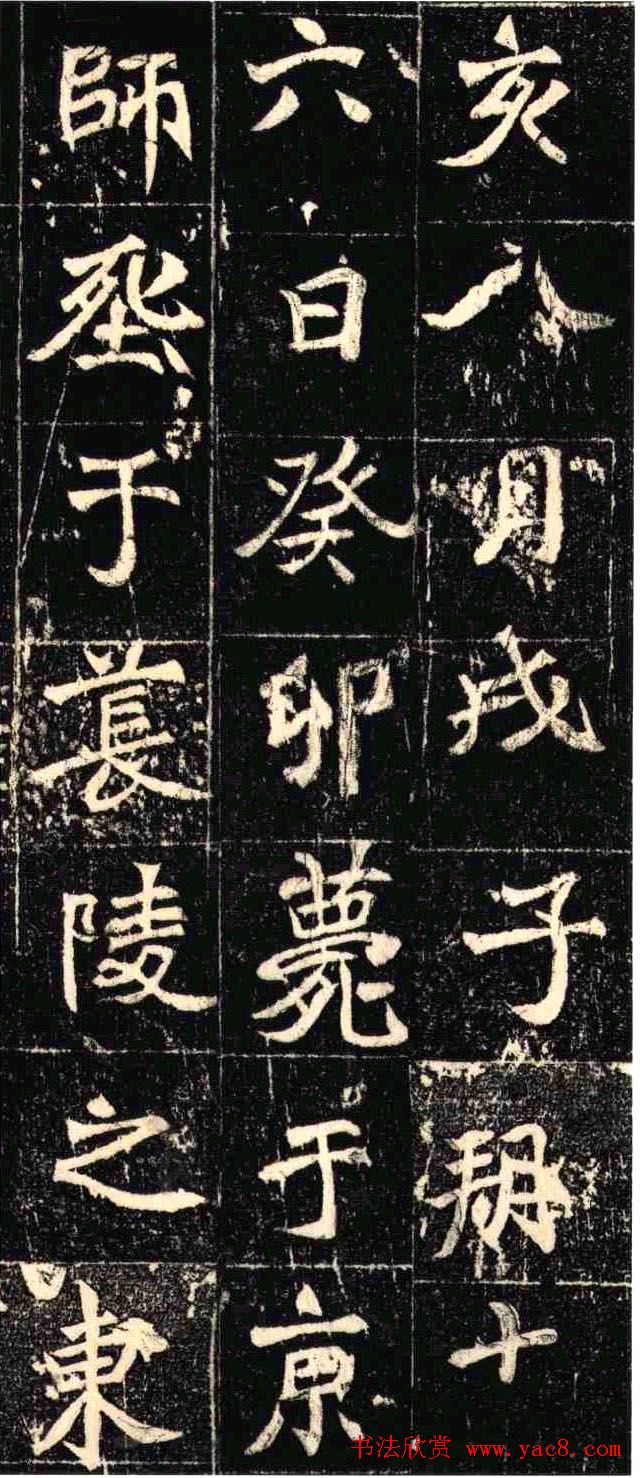 亥八月戊子朔十
六日癸卯薨于京
師于萇陵之東
书法欣赏 www.yac8.com